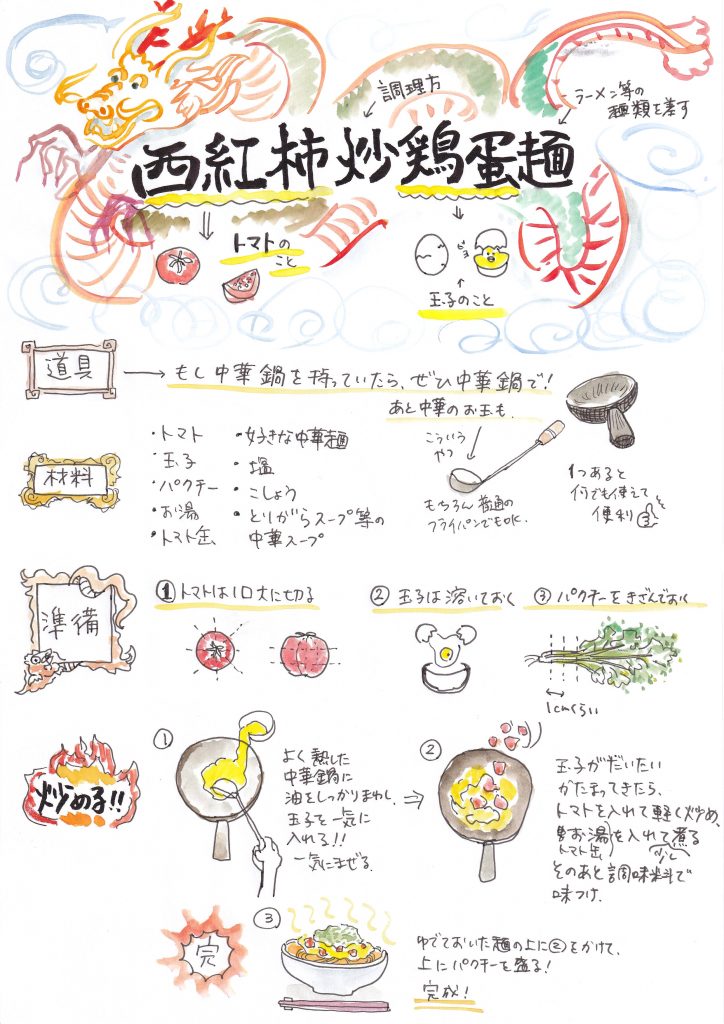 調理方
ラーメン等の
種類を差す
西紅柿炒鶏蛋麺
トマトの
こと
ピヨ
玉子のこと
道具
もし中華鍋を持っていたら、ぜひ中華鍋で!
あと中華のお玉も。
こういう
やつ
もちろん普通の
フライパンでもOK.
1つあると
何でも使えて
便利
材料
・トマト
・玉子
・パクチー
・お湯
・トマト缶
・好きな中華麺
・塩
・こしょう
・とりがらスープ等の
中華スープ
準備
①トマトは1口大に切る
②玉子は溶いておく
③パクチーをきざんでおく
1cmくらい
炒める!!
①
よく熱した
中華鍋に
油をしっかりまわし、
玉子を一気に
入れる!!
一気にまぜる。
②
玉子がだいたい
かたまってきたら、
トマトを入れて軽く炒め、
お湯を入れて煮る
トマト缶
少し
そのあと調味料で
味つけ.
完
③
ゆでておいた麺の上に②をかけて、
上にパクチーを盛る!
完成!